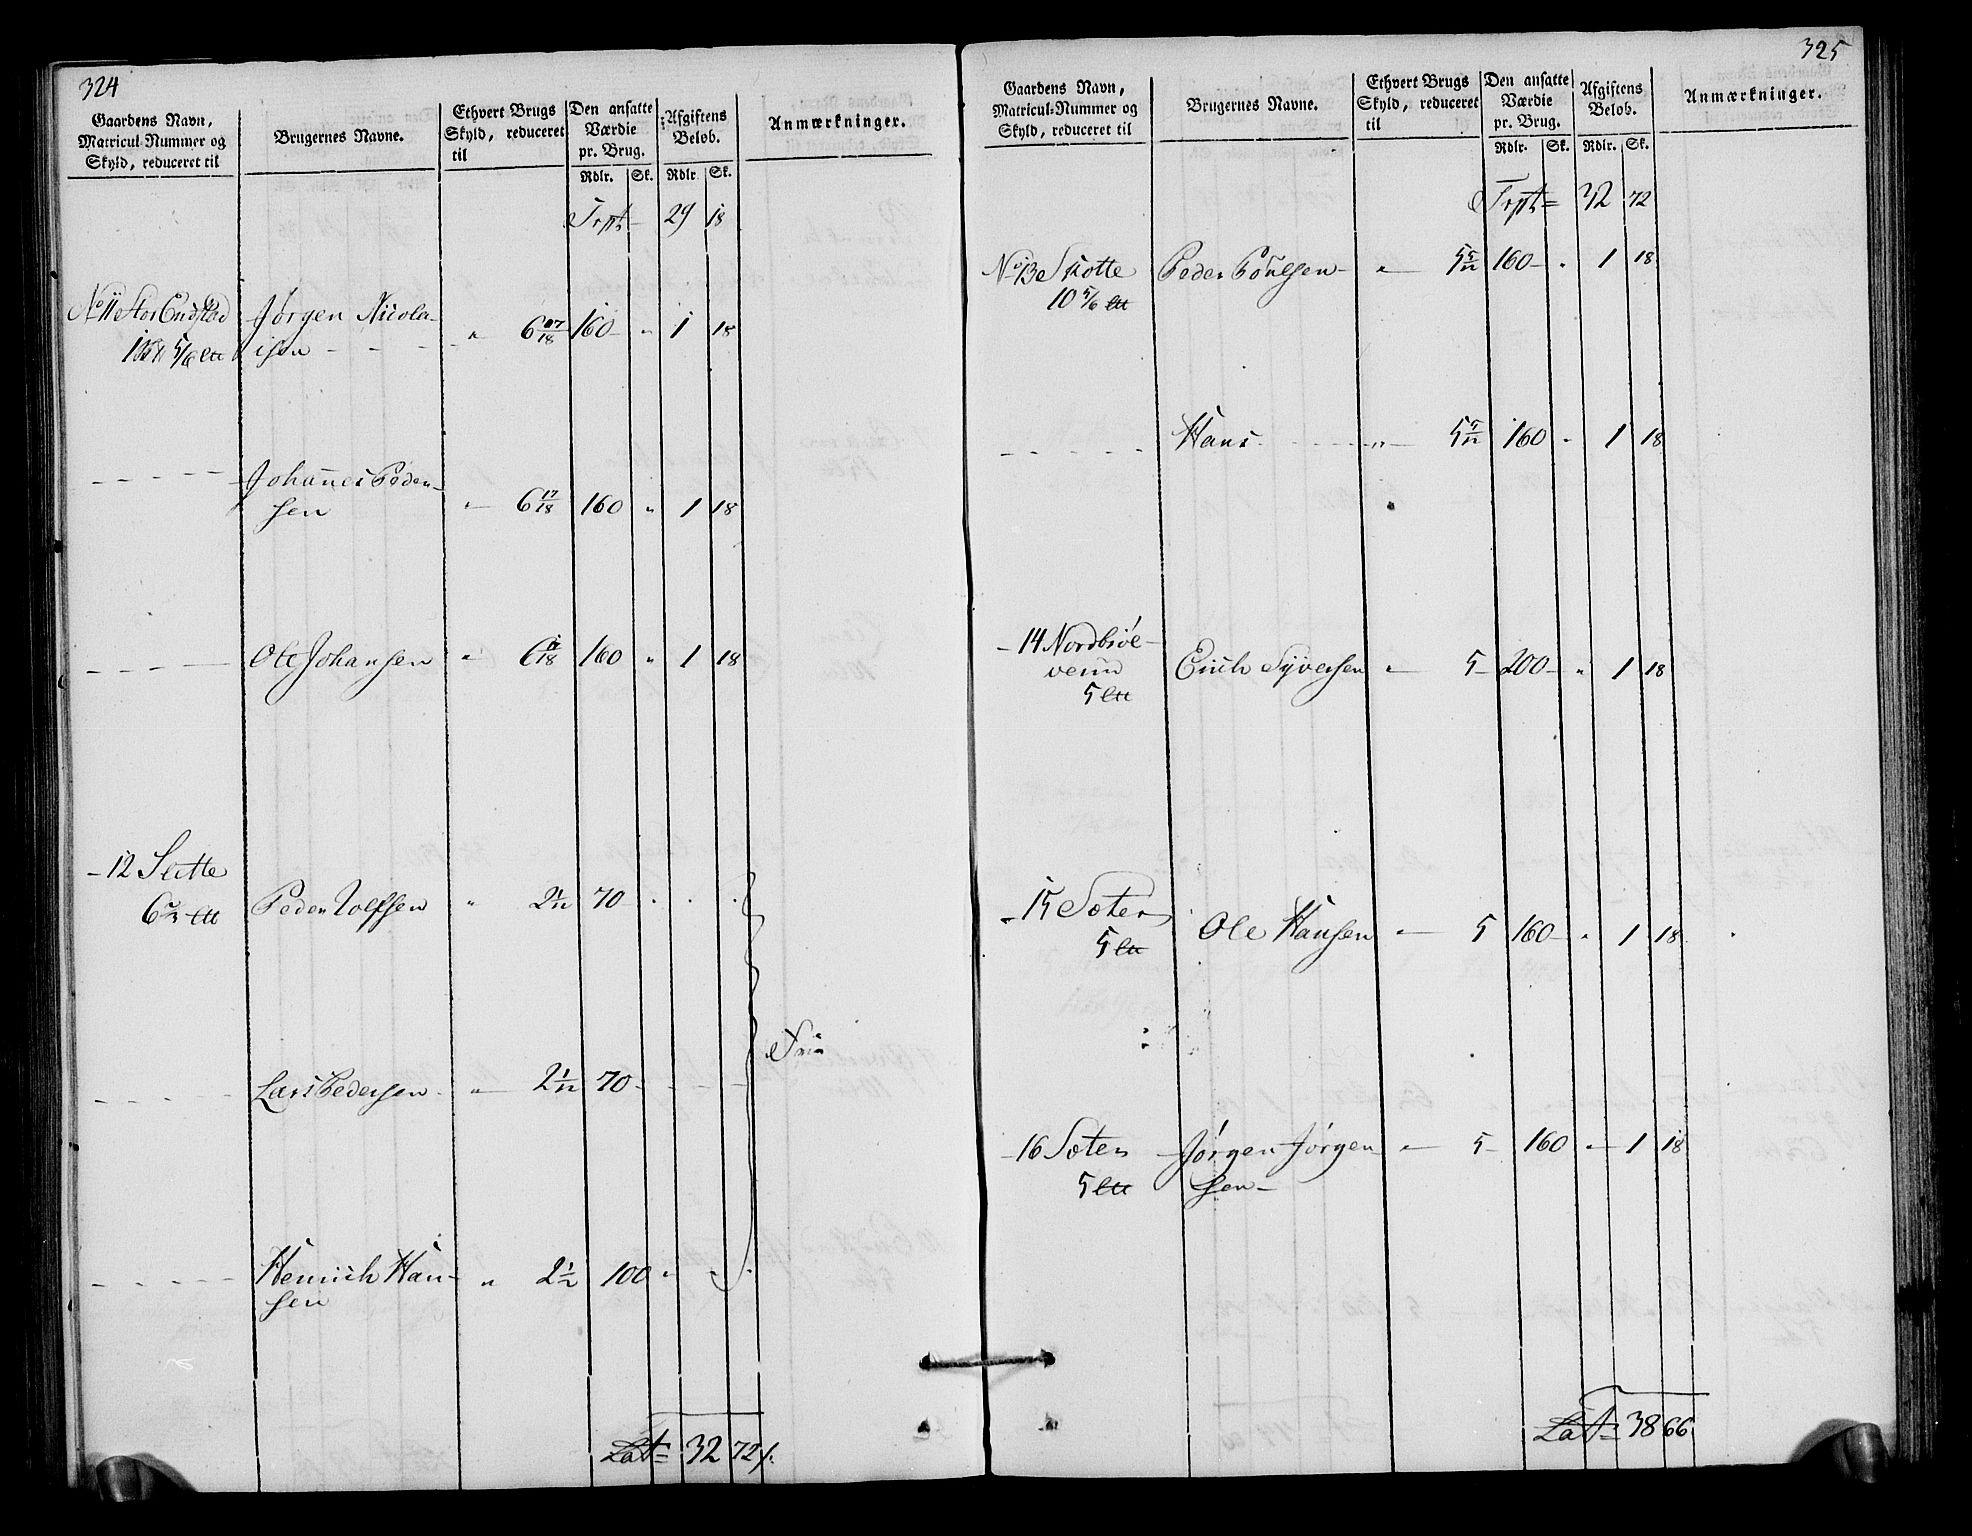 324
Gaardens Navn,
Matricul-Nummer og
Skyld, reduceret til
Brugernes Navne.
Ethvert Brugs
Skyld, reduceret
til
Den ansatte
Værdie
pr. Brug.
Rdlr. Sk.
Afgiftens
Beløb.
Rdlr Sk.
Anmærkninger.
Trpt 29 18
No 11 Stor Endstad Jørgen Nicola-
isen - - - " 6 17/18 160 " 1 18
5/6
Johannes Peder-
sen " 6 17/18 160 " 1 18
Ole Johansen " 6 17/18 160 " 1 18
- 12 Slette
6 Peder Rolfsen " 2 1/12 70
Frie
Lars Pedersen " 2 1/12 70
Henrich Han-
sen " 2 1/12 100
Lat 32 72
325
Gaardens Navn,
Matricul-Nummer og
Skyld, reduceret til
Brugernes Navne.
Ethvert Brugs
Skyld, reduceret
til
Den ansatte
Værdie
pr. Brug.
Rdlr. Sk.
Afgiftens
Beløb.
Rdlr. Sk.
Anmærkninger.
Trpt 32 72
No 13 Skotte Peder Poulsen " 5 5/12 160 " 1 18
10 5/6
Hans " 5 5/12 160 " 1 18
- 14 Nordbröe-
Erich Syversen " 5 200 " 1 18
5
- 15 Sæter Ole Hansen " 5 160 " 1 18
5
- 16 Sæter Jørgen Jørgen " 5 160 " 1 18
5 sen
Lat 38 66